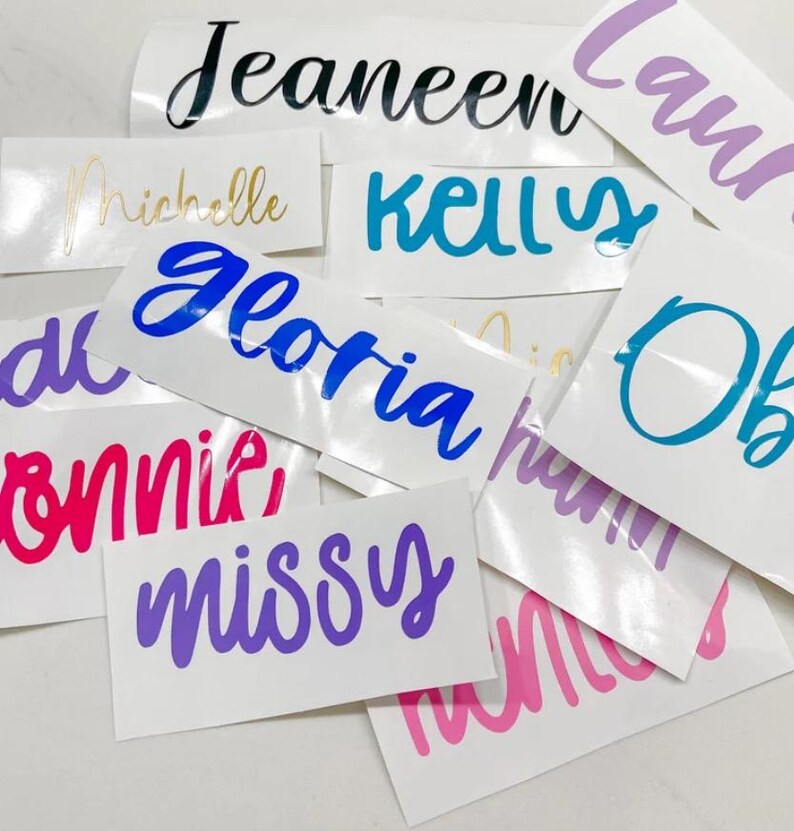 Jeaneen
Laur
Michelle
Kelly
gloria
Ob
onnie
missy